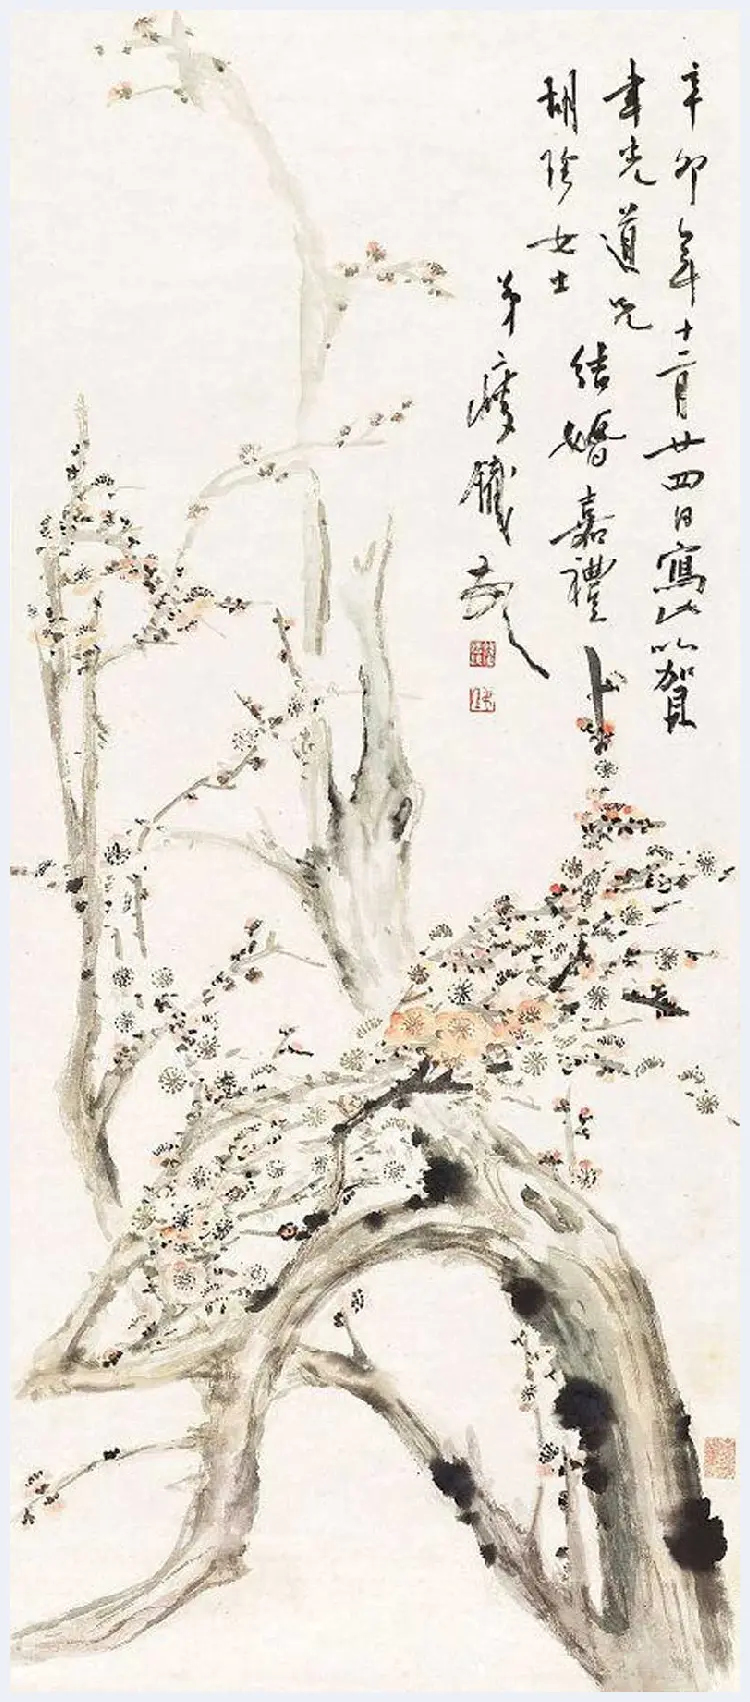 辛卯年十二月廿四日寫此以賀
聿光道兄結婚嘉禮
胡珍女士
弟瘦鐵敬